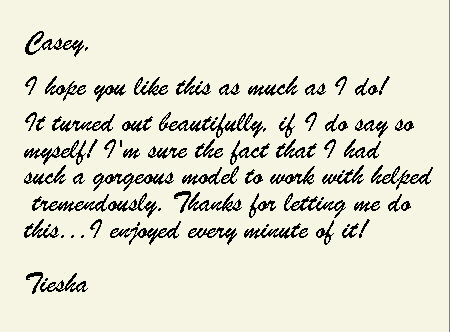 Casey,
I hope you like this as much as I do!
It turned out beautifully, if I do say so
myself! I'm sure the fact that I had
such a gorgeous model to work with helped
tremendously. Thanks for letting me do
this...I enjoyed every minute of it!
Tiesha